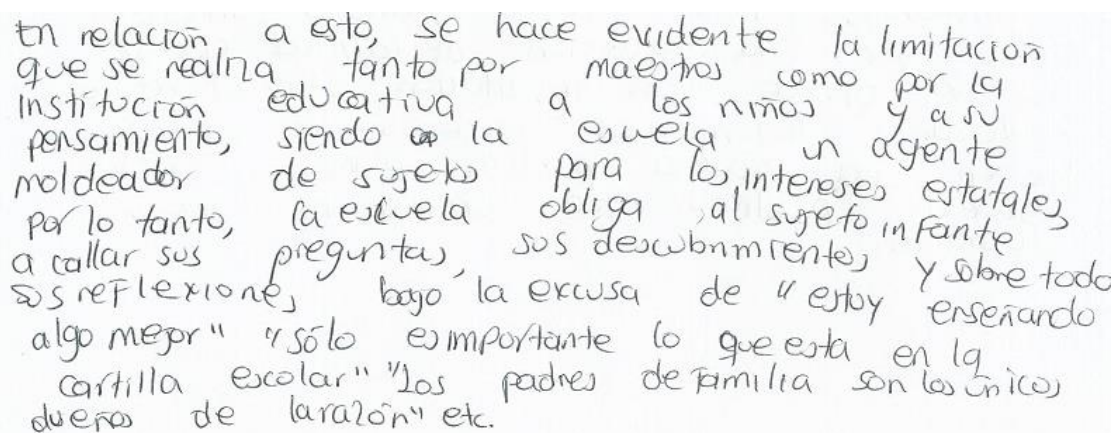 En relación a esto, se hace evidente la limitación
que se realiza tanto por maestros como por la
institución educativa a los niños y a su
pensamiento, siendo la escuela un agente
moldeador de sujetos para los intereses estatales,
por lo tanto, la escuela obliga al sujeto infante
a callar sus preguntas, sus descubrimientos, y sobre todo
sus reflexiones, bajo la excusa de "estoy enseñando
algo mejor" "sólo es importante lo que esta en la
cartilla escolar" "Los padres de familia son los únicos
dueños de la razón" etc.